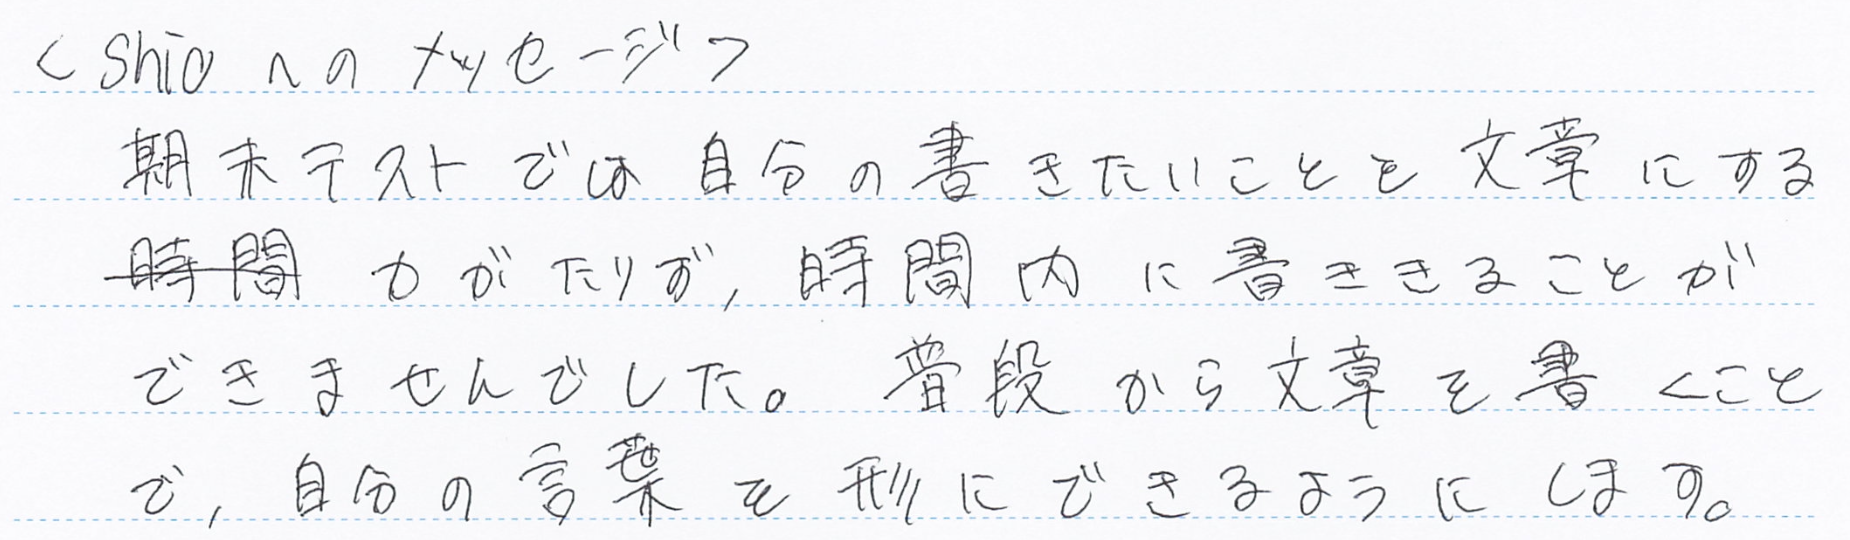 <Shioへのメッセージ>
期末テストでは自分の書きたいことを文章にする
時間 力がたりず, 時間内に書ききることが
できませんでした。 普段から文章を書くこと
で, 自分の言葉を形にできるようにします。